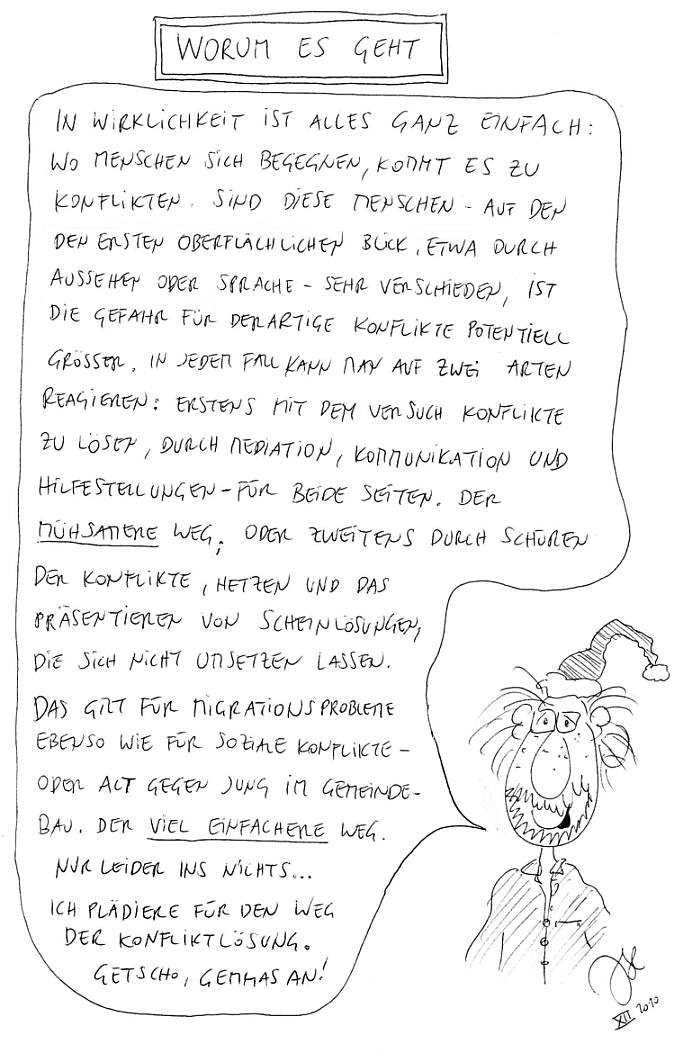 WORUM ES GEHT
IN WIRKLICHKEIT IST ALLES GANZ EINFACH:
WO MENSCHEN SICH BEGEGNEN, KOMMT ES ZU
KONFLIKTEN. SIND DIESE MENSCHEN - AUF DEN
DEN ERSTEN OBERFLÄCHLICHEN BLICK, ETWA DURCH
AUSSEHEN ODER SPRACHE - SEHR VERSCHIEDEN, IST
DIE GEFAHR FÜR DERARTIGE KONFLIKTE POTENTIELL
GRÖSSER. IN JEDEM FALL KANN MAN AUF ZWEI ARTEN
REAGIEREN: ERSTENS MIT DEM VERSUCH KONFLIKTE
ZU LÖSEN, DURCH MEDIATION, KOMMUNIKATION UND
HILFESTELLUNGEN - FÜR BEIDE SEITEN. DER
MÜHSAMERE WEG; ODER ZWEITENS DURCH SCHÜREN
DER KONFLIKTE, HETZEN UND DAS
PRÄSENTIEREN VON SCHEINLÖSUNGEN,
DIE SICH NICHT UMSETZEN LASSEN.
DAS GILT FÜR MIGRATIONSPROBLEME
EBENSO WIE FÜR SOZIALE KONFLIKTE -
ODER ALT GEGEN JUNG IM GEMEINDE-
BAU. DER VIEL EINFACHERE WEG.
NUR LEIDER INS NICHTS...
ICH PLÄDIERE FÜR DEN WEG
DER KONFLIKTLÖSUNG.
GETSCHO, GEMMAS AN!
XII 2010